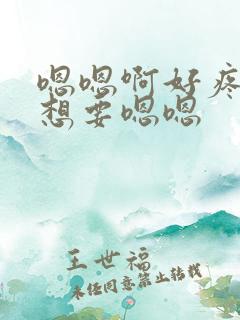 嗯嗯啊好疼
想要嗯嗯
王世福
未经同意禁止转载